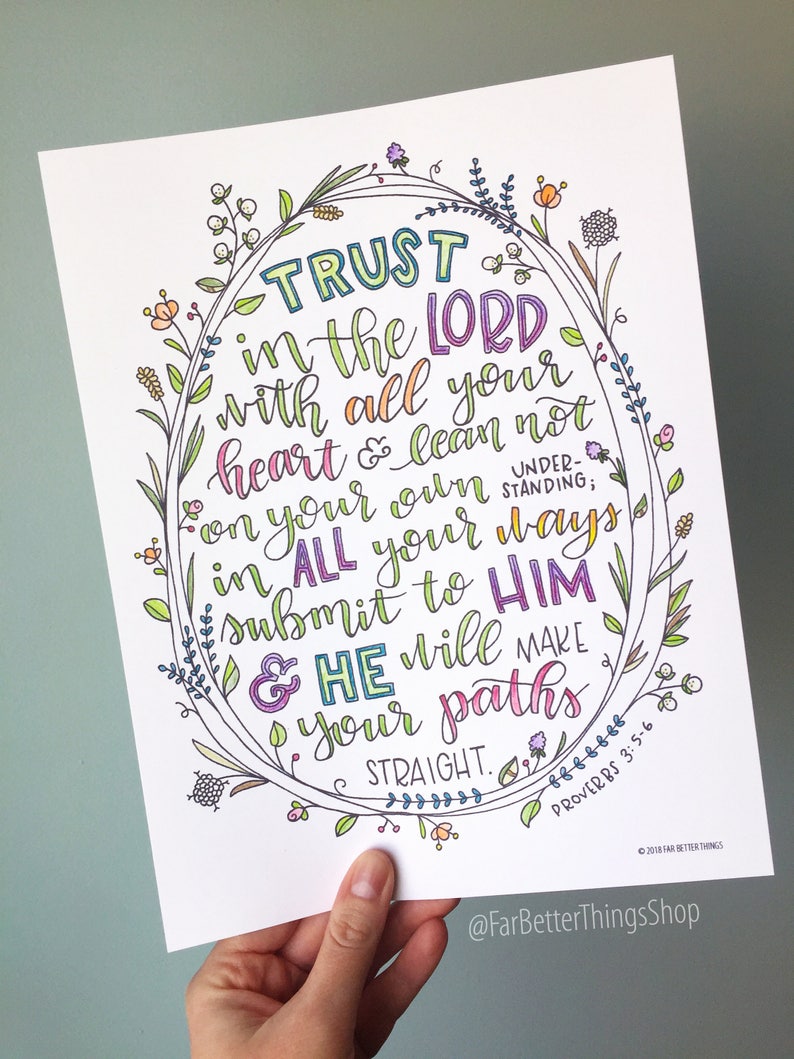 TRUST
in the LORD
with all your
heart & lean not
on your own UNDER-
STANDING;
in ALL your ways
submit to HIM
& HE will MAKE
your paths
STRAIGHT.
PROVERBS 3:5-6
© 2018 FAR BETTER THINGS
@FarBetterThingsShop